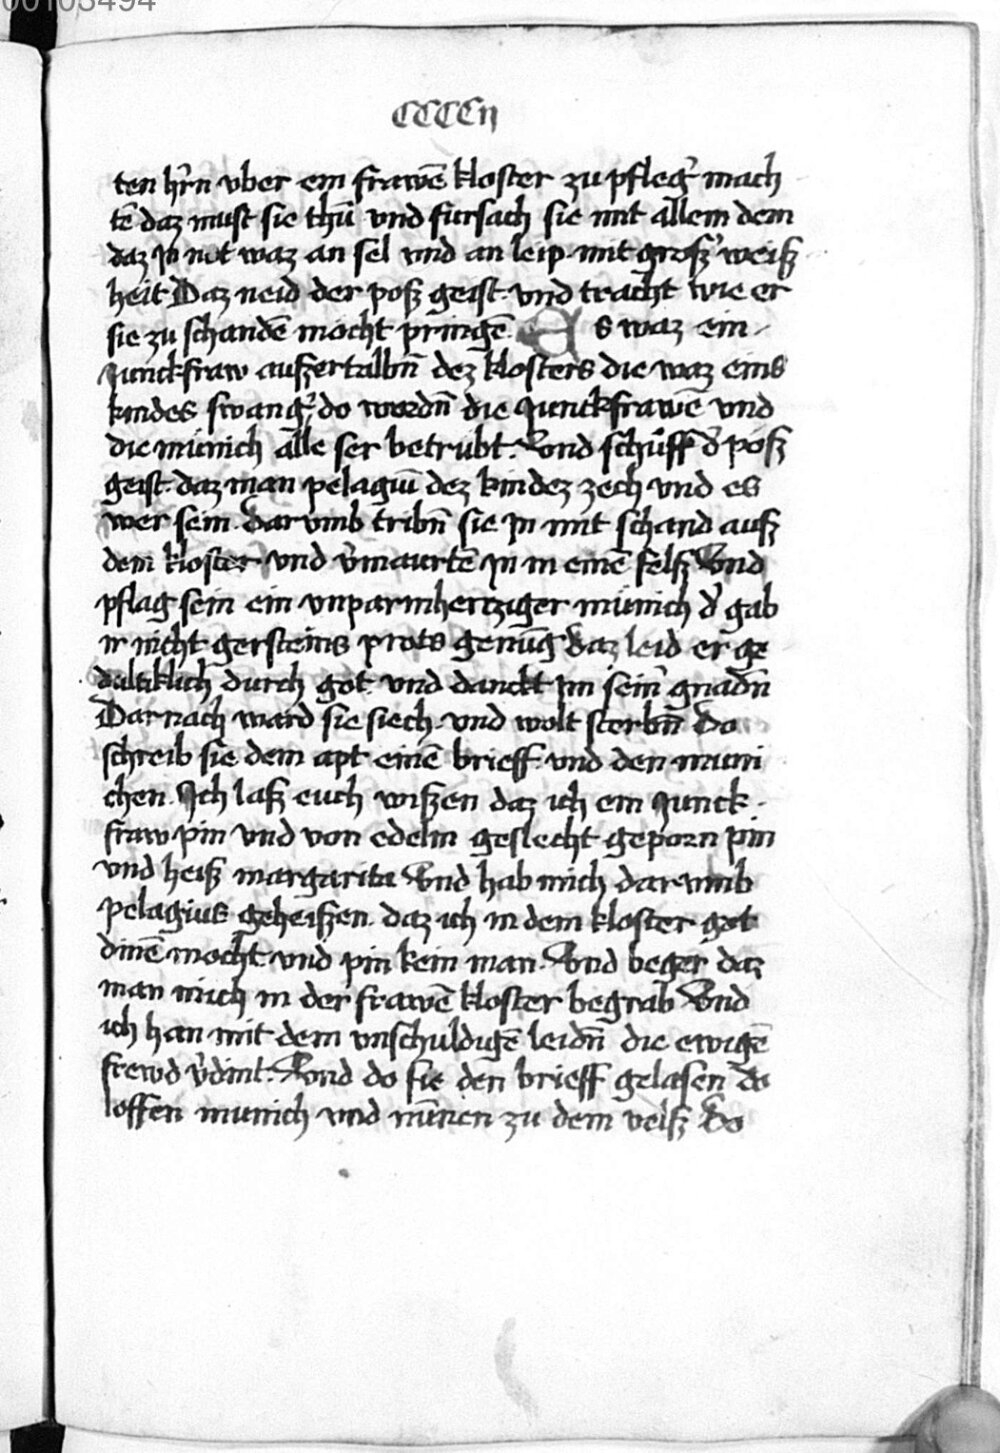 00103494
CCCCII
ten hr̄n vber ein frawē kloster zu pfleg̉ mach
tē daz must sie thū vnd fürsach sie mit allem dem
daz jn not waz an sel vnd an leip mit groſz̉ weiſz
heit Daz neid der poſz geist vnd tracht wie er
sie zu schandē mocht pringē Es waz ein
junckfraw auſzertalbn̄ dez klosters die waz eins
kindes swang̉ do wordn̄ die junckfrawē vnd
die münich alle ser betrubt Vnd schüff d̉ poſz
geist daz man pelagiū dez kindez zech vnd es
wer sein darvmb tribn̄ sie jn mit schand auſz
dem kloster vnd v̉maurtē jn in einē felſz Vnd
pflag sein ein vnparmhertziger münich d̉ gab
ir nicht gersteins prots genūg daz leid er ge
dultiklich durch got vnd danckt jm sein̉ gnadn̄
Darnach ward sie siech vnd wolt sterbn̄ Do
schreib sie dem apt einē brieff vnd den muni
chen Ich laſz euch wiſzen daz ich ein junck
fraw pin vnd von edelm geslecht geporn pin
vnd heiſz margarita Vnd hab mich darvmb
pelagius geheiſzen daz ich in dem kloster got
dinē mocht vnd pin kein man Vnd beger daz
man mich in der frawē kloster begrab Vnd
ich han mit dem vnschuldigē leidn̄ die ewigē
frewd v̉dint Vnd do sie den brieff gelasen do
loffen munich vnd nūnen zu dem velſz Do